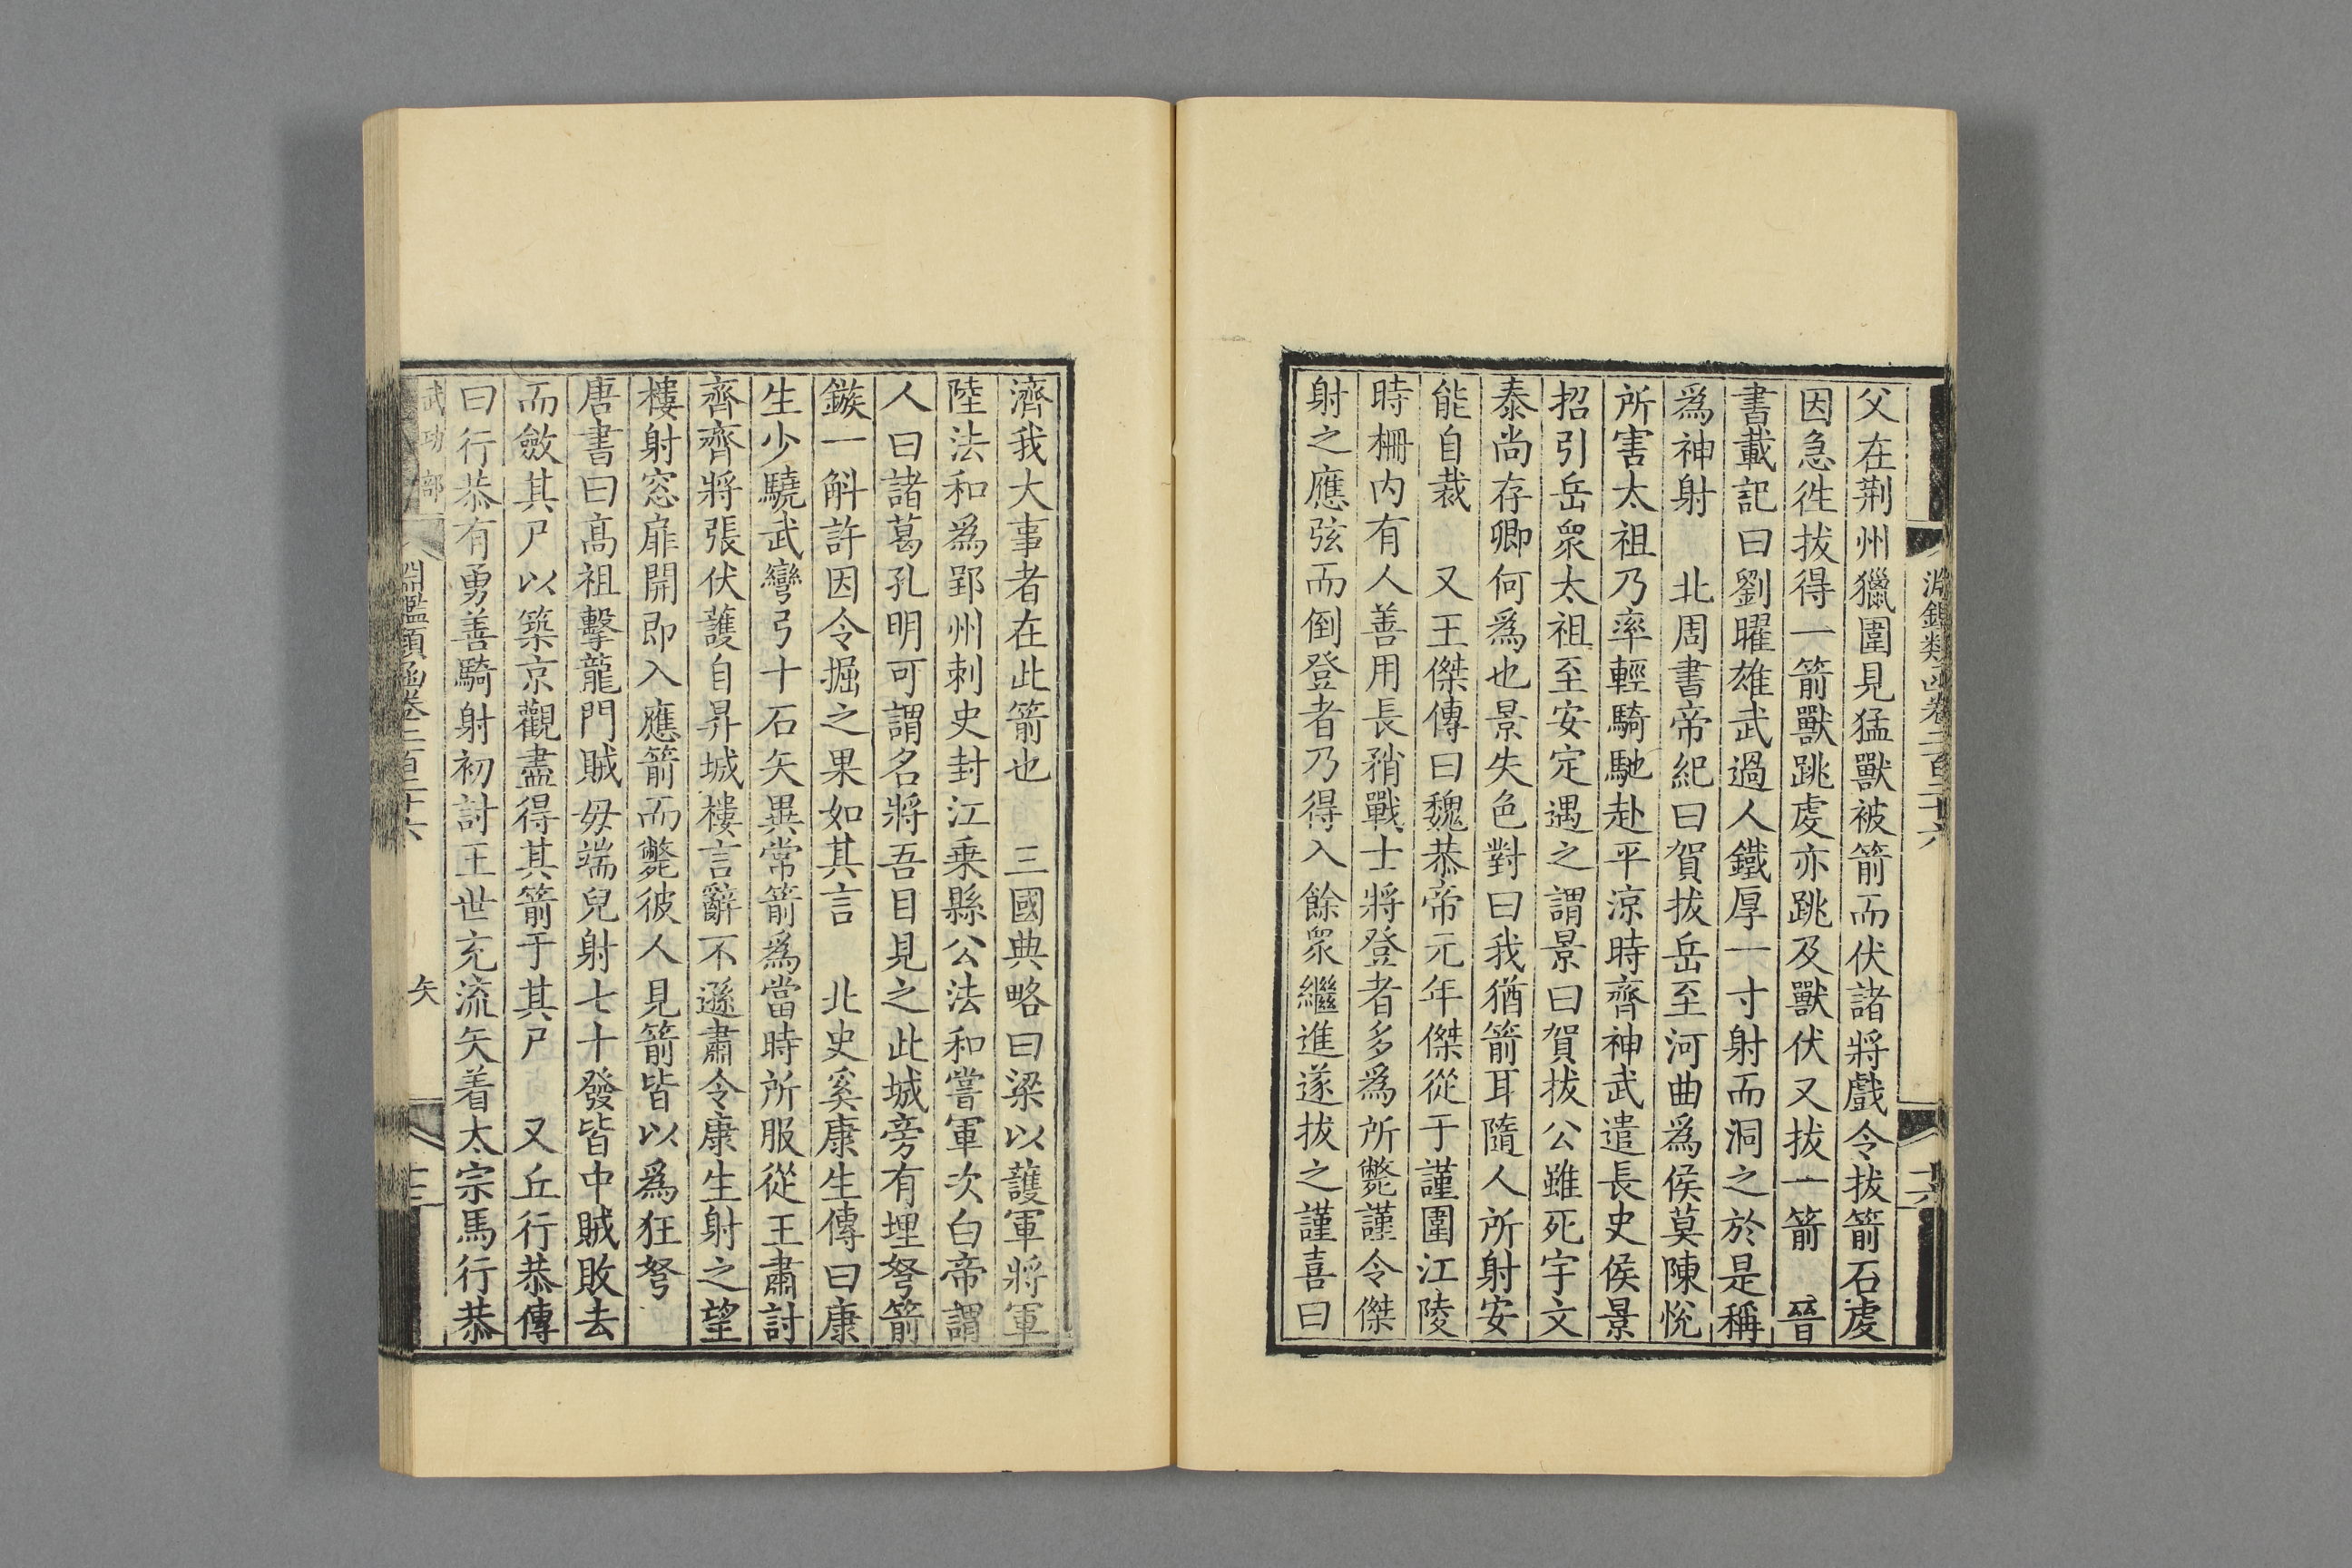 淵鑑類函卷二百二十六
父在荆州獵圍見猛獸被箭而伏諸將戲令拔箭石虔
因急徃拔得一箭獸跳虔亦跳及獸伏又拔一箭　晉
書載記曰劉曜雄武過人鐵厚一寸射而洞之於是稱
爲神射　北周書帝紀曰賀拔岳至河曲爲侯莫陳悅
所害太祖乃率輕騎馳赴平涼時齊神武遣長史侯景
招引岳衆太祖至安定遇之謂景曰賀拔公雖死宇文
泰尚存卿何爲也景失色對曰我猶箭耳隨人所射安
能自裁　又王傑傳曰魏恭帝元年傑從于謹圍江陵
時柵内有人善用長矟戰士將登者多爲所斃謹令傑
射之應弦而倒登者乃得入餘衆繼進遂拔之謹喜曰
濟我大事者在此箭也　三國典略曰梁以護軍將軍
陸法和爲郢州刺史封江乗縣公法和嘗軍次白帝謂
人曰諸葛孔明可謂名將吾目見之此城旁有埋弩箭
鏃一斛許因令掘之果如其言　北史奚康生傳曰康
生少驍武彎弓十石矢異常箭爲當時所服從王肅討
齊齊將張伏護自昇城樓言辭不遜肅令康生射之望
樓射窓扉開即入應箭而斃彼人見箭皆以爲狂弩
唐書曰髙祖擊龍門賊毋端兒射七十發皆中賊敗去
而斂其尸以築京觀盡得其箭于其尸　又丘行恭傳
曰行恭有勇善騎射初討王世充流矢着太宗馬行恭
武功部　淵鑑類函卷二百二十六　矢